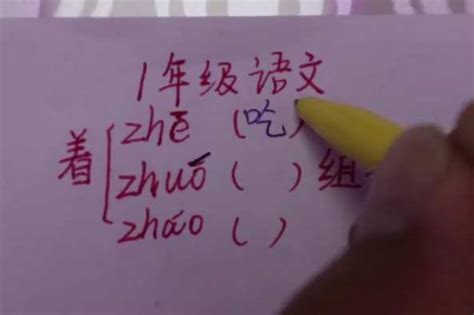 1年级语文
zhē (吃)
着 zhuó ( ) 组
zháo ( )